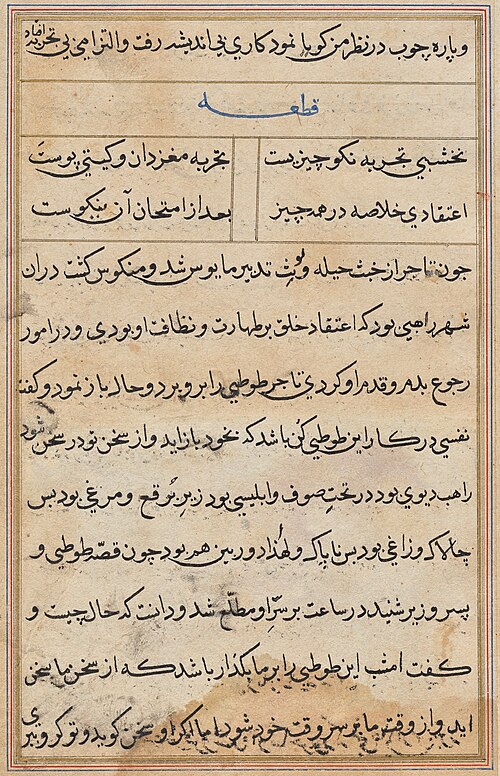 و پاره چوب در نظر من گویا نمود کاری بی اندیشه رفت و التزامی بی تجربه افتاد
قطعه
نخشبی تجربه نکو چیزیست تجربه مغز دان و گیتی پوست
اعتقادی خلاصه در همه چیز بعد از امتحان آن نیکوست
چون تاجر از خبث حیله و لوث تدبیر مایوس شد و منکوس گشت دران
شهر راهبی بود که اعتقاد خلق بر طهارت و نظافت او بودی و در امور
رجوع بدم و قدم او کردی تاجر طوطی را برو برد و حال باز نمود و گفت
نفسی در کار این طوطی کن باشد که بخود باز اید و از سخن تو در سخن شود
راهب دیوی بود در تحت صوف و ابلیسی بود زیر برقع و مرغی بود بس
چالاک و زاغی بود بس ناپاک و لهذا دوربین هم بود چون قصّه طوطی و
پسر وزیر شنید در ساعت بر سرّ او مطلّع شد و دانست که حال چیست و
گفت امشب این طوطی را بر ما بگذار باشد که از سخن ما سخن
اید و از وقت ما بر سر وقت خود شود اما اگر او سخن گوید و تو گرو بری